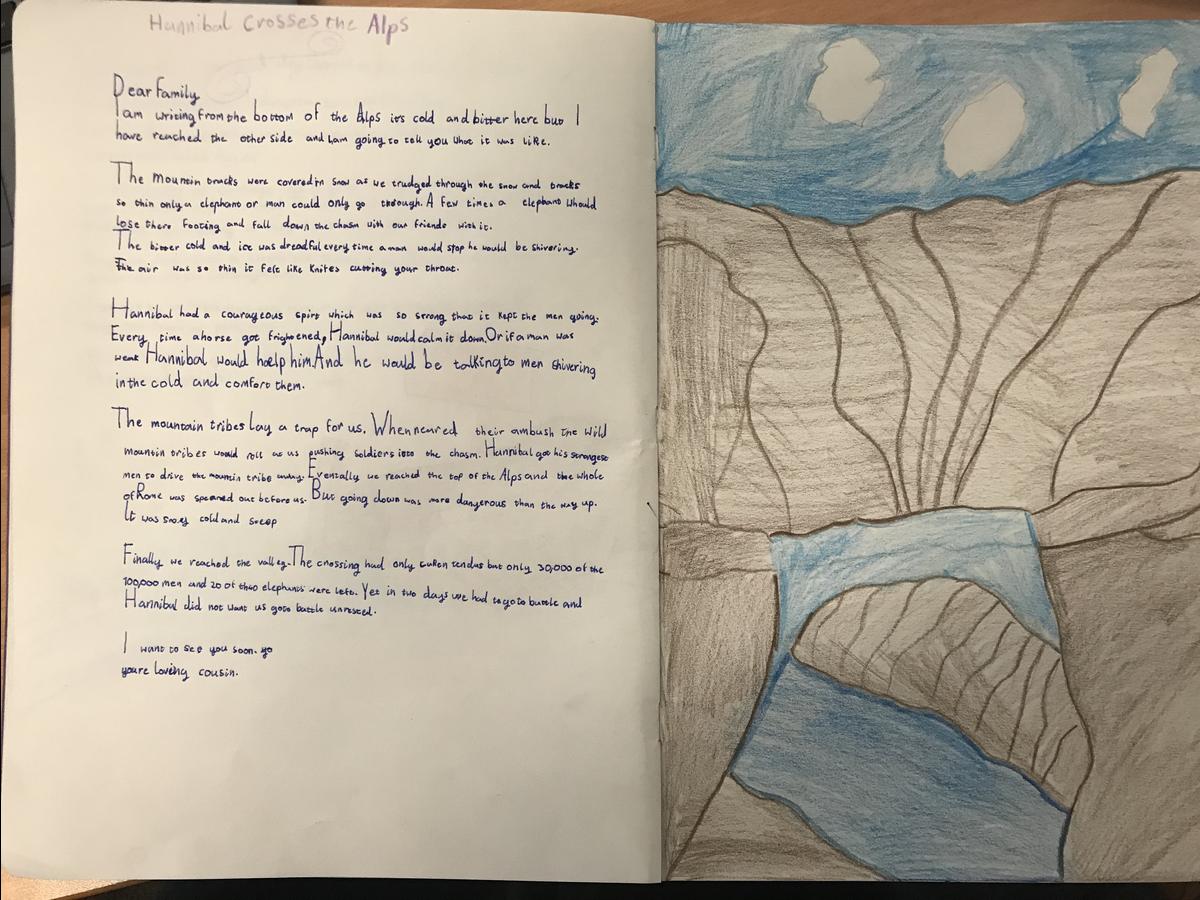 Hannibal Crosses the Alps
Dear Family
I am writing from the bottom of the Alps its cold and bitter here but I
have reached the other side and I am going to tell you what it was like.
The mountin tracks were covered in snow as we trudged through the snow and tracks
so thin only a elephant or man could only go through. A few times a elephant whould
lose there footing and fall down the chasm with our friends with it.
The bitter cold and ice was dreadful every time a man would stop he would be shivering.
The air was so thin it felt like knifes cutting your throat.
Hannibal had a courageous spirt which was so strong that it kept the men going.
Every time a horse got frightened, Hannibal would calm it down. Or if a man was
weak Hannibal would help him. And he would be talking to men shivering
in the cold and comfort them.
The mountain tribes Lay a trap for us. When neared their ambush the wild
mountain tribes would roll at us pushing soldiers into the chasm. Hannibal got his strongest
men to drive the mountin tribe away. Eventally we reached the top of the Alps and the whole
of Rome was out before us. But going down was more dangerous than the way up.
It was snoey cold and steep
Finally we reached the valley. The crossing had only taken but only 30,000 of the
100,000 men and 20 of elephants were left. Yet in two days we had to go to battle and
Hannibal did not want us goto battle unrested.
I want to see you soon. go
youre loveing cousin.